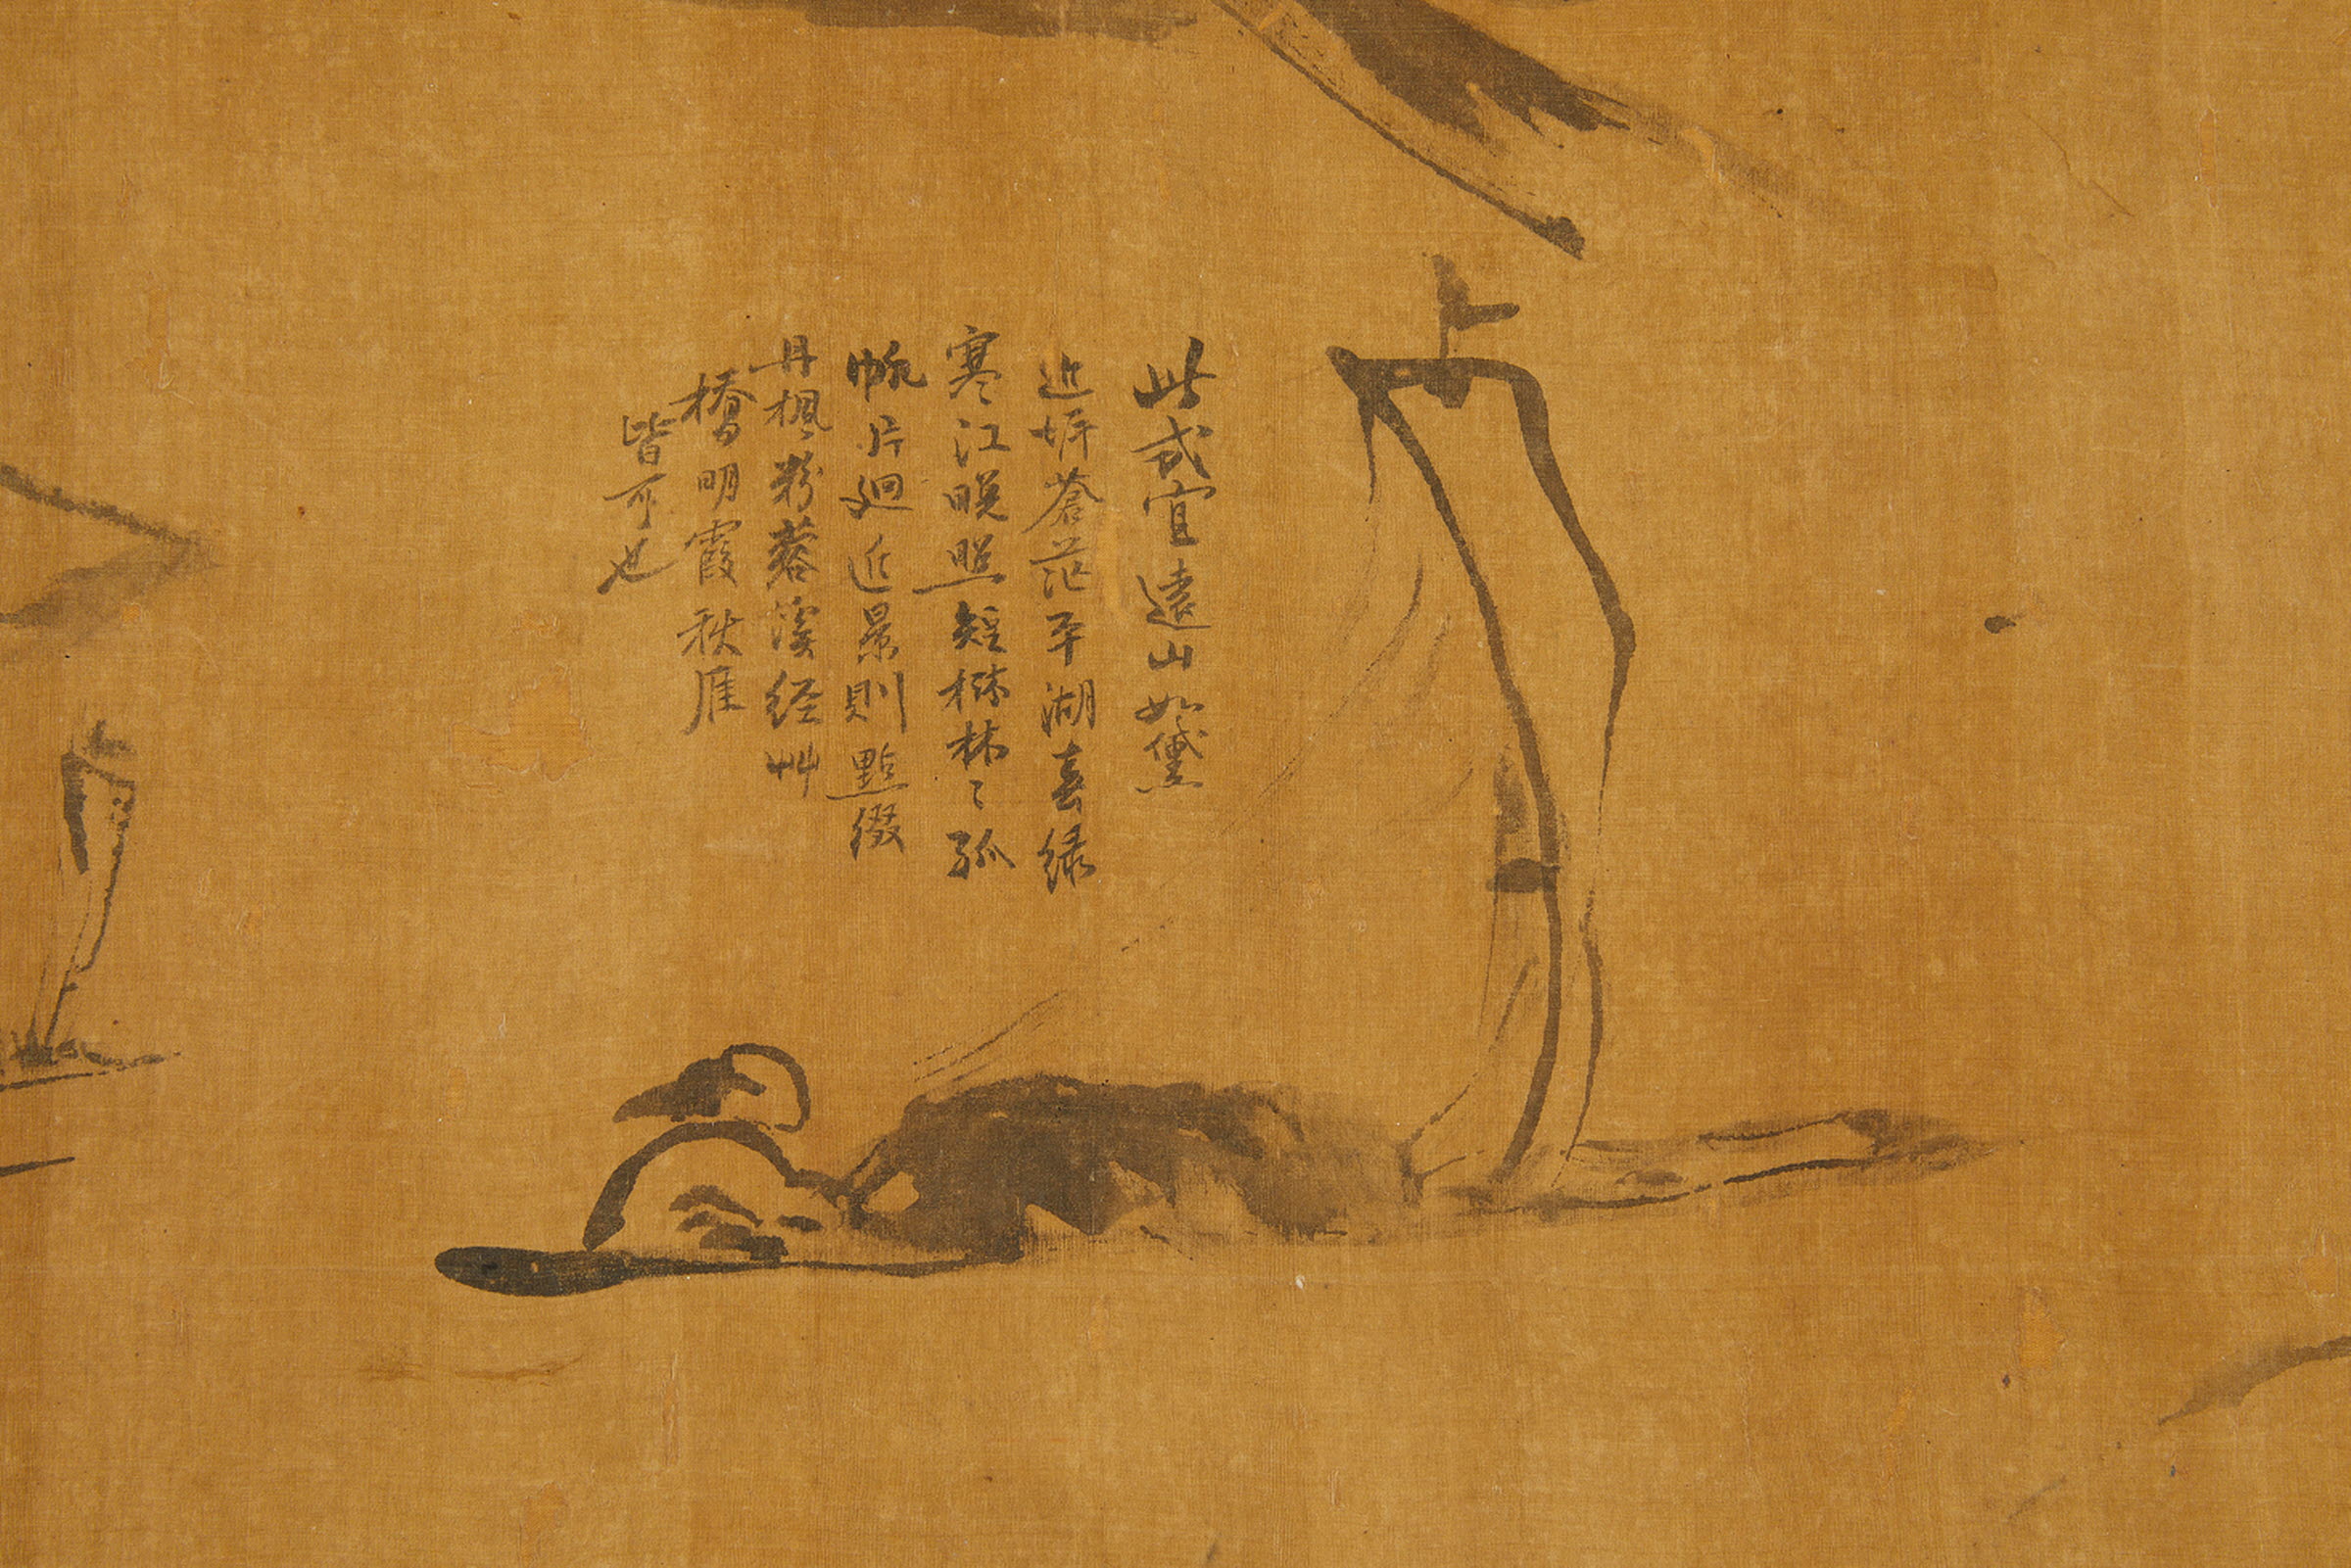 此式宜遠山如黛
近坪蒼茫平湖春綠
寒江晚照短梯林〻孤
帆片廻近景則點綴
丹楓粉蓉溪经艸
橋明霞秋雁
皆可也